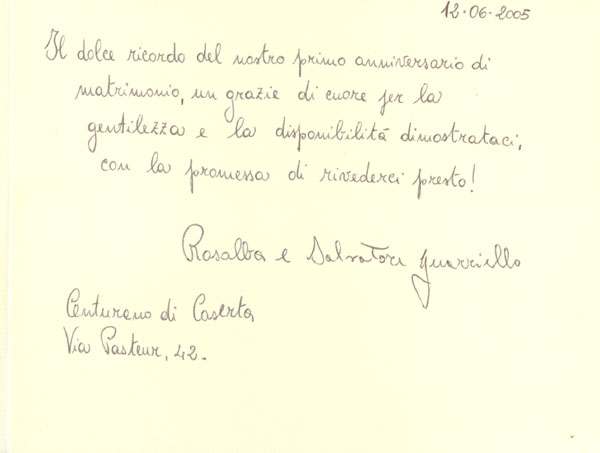 12.06.2005
Il dolce ricordo del nostro primo anniversario di
matrimonio, un grazie di cuore per la
gentilezza e la disponibilità dimostrataci,
con la promessa di rivederci presto!
Rosalba e Salvatore Guarriello
Centurano di Caserta,
Via Pasteur, 42.